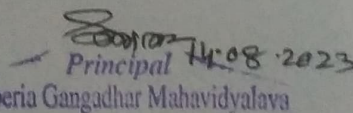 14.08.2023
Principal
eria Gangadhar Mahavidyalaya